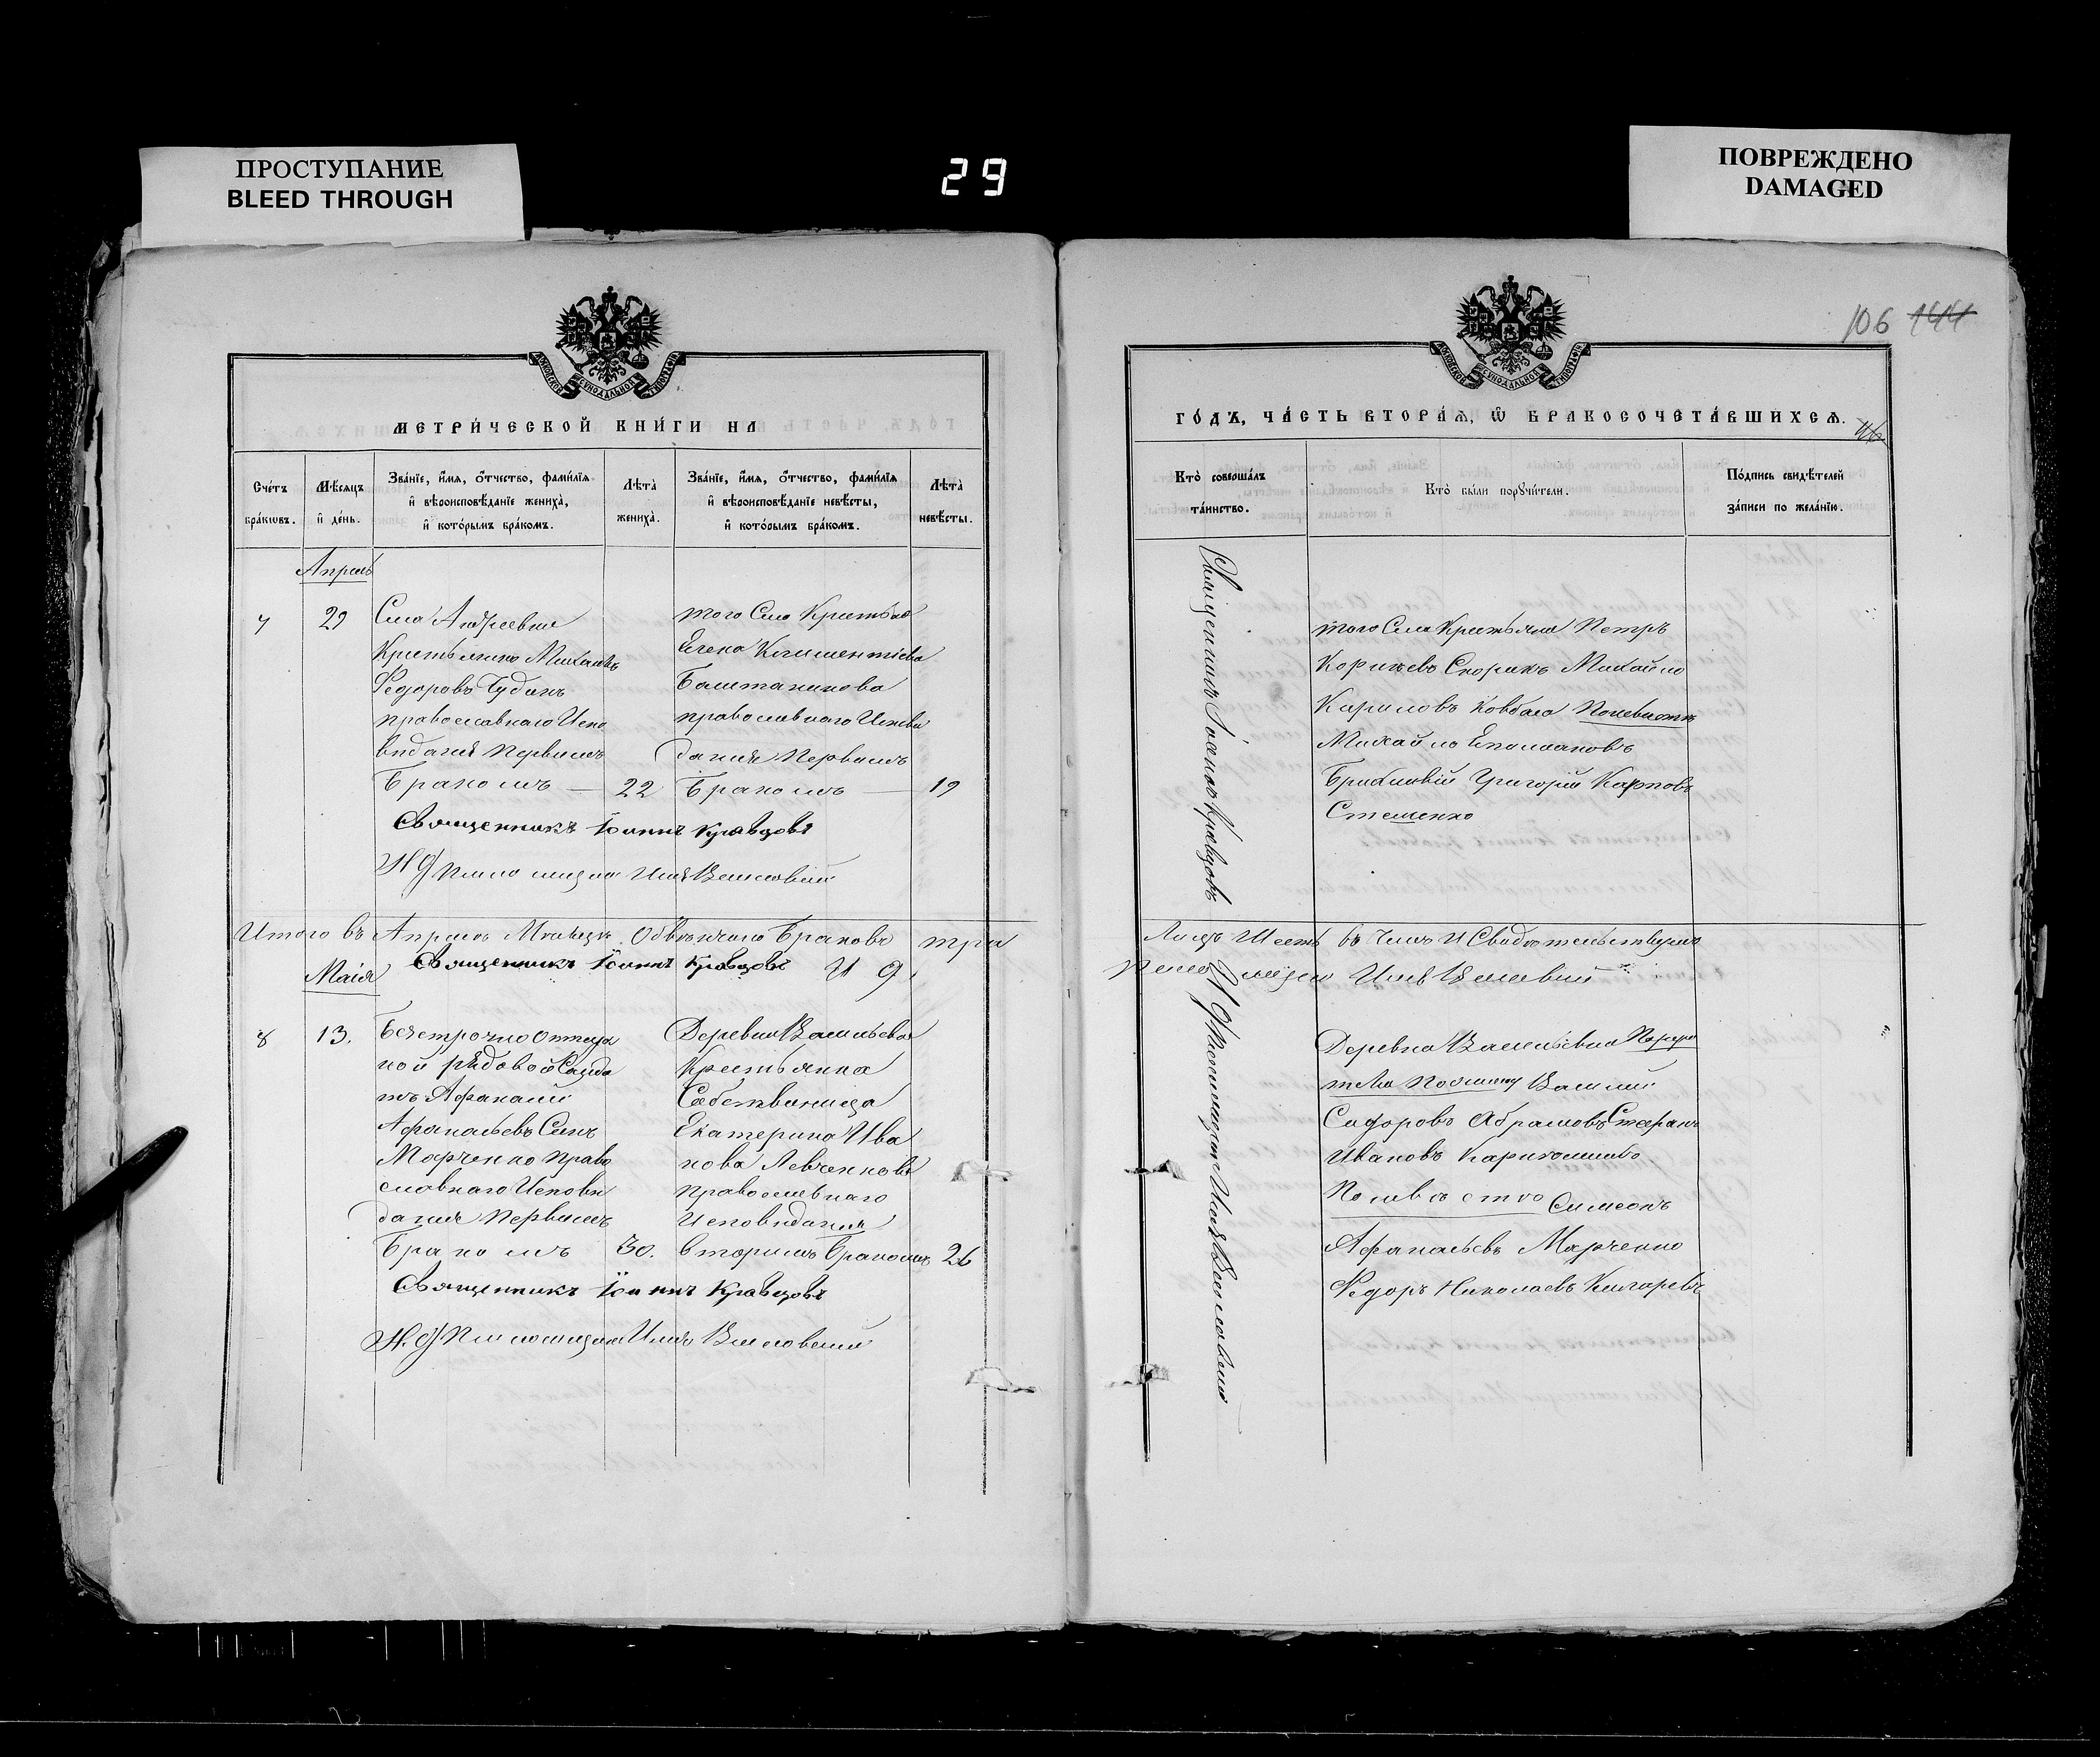 ПРОСТУПАНИЕ
BLEED THROUGH
29
ПОВРЕЖДЕНО
DAMAGED
106 144
МОСКОВСКОЙ СѴНОДАЛЬНОЙ ТИПОГРАФІИ
МЕТРИ́ЧЕСКОЙ КНИ́ГИ НА
Сче́тъ бра́ковъ.
Мѣ́сяцъ и де́нь.
Зва́нїе, и́мя, о́тчество, фами́лїя и вѣроисповѣ́данїе жениха̀, и кото́рымъ бра́комъ.
Лѣта̀ жениха̀.
Зва́нїе, и́мя, о́тчество, фами́лїя и вѣроисповѣ́данїе невѣ́сты, и кото́рымъ бра́комъ.
Лѣта̀ невѣ́сты.
Апрель
7
29
Села Андреевки
Крестьянинъ Михаилъ
Федоровъ Чудикъ
православнаго Испо
виданія Первымъ
Бракомъ — 22
того Села Крестьянка
Елена Климентіева
Баштанникова
православнаго Испови
данія Первымъ
Бракомъ — 19
Священникъ Іоаннъ Кравцовъ
И Д Псаломщика Илія
Итого въ Апреле Месяце Обвенчано Браковъ три
Священникъ Іоаннъ Кравцовъ И Д
Маія
8
13.
Безсрочно отпуск
ной рядовой Солда
тъ Афанасій
Афанасьевъ Сынъ
Марченко Право
славнаго Испови
данія Первымъ
Бракомъ 30.
Деревни Васильевки
Крестьянка
Собственница
Екатерина Ива
нова Левченкова
Православнаго
Исповиданія
вторымъ Бракомъ 26
Священникъ Іоаннъ Кравцовъ
И. Д Псаломщика Илія
ГО́ДЪ, ЧА́СТЬ ВТОРА́Я, Ѡ БРАКОСОЧЕТА́ВШИХСЯ.
Кто̀ соверша́лъ та́инство.
Кто̀ бы́ли порꙋчи́тели.
По́дпись свидѣ́телей за́писи по жела́нїю.
Священникъ Іоаннъ Кравцовъ
того Села Крестьяне Петръ
Скорикъ Михайло
Кириловъ Ковбаса По невесте
Михайло
Григорій Карповъ
Стеценко
Лицъ Шесть въ Чемъ И Свидетельствуемъ
И Д Псаломщика Илія
Деревни Васильевки Поручи
тели По жениху Василій
Сидоровъ Абрамовъ Стефанъ
Ивановъ
По невесте Симеонъ
Афанасьевъ Марченко
Федоръ Николаевъ